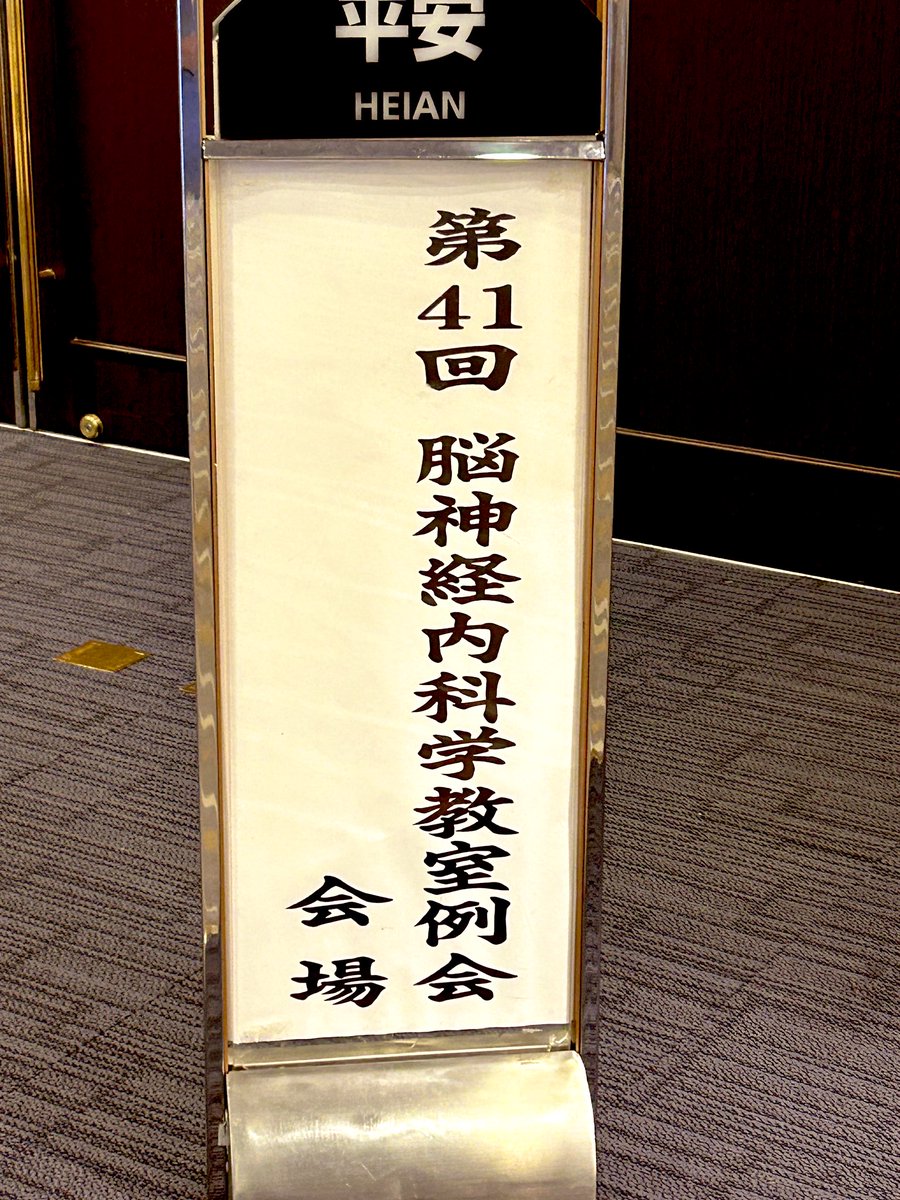 平安
HEIAN
第41回 脳神経内科学教室例会
会場